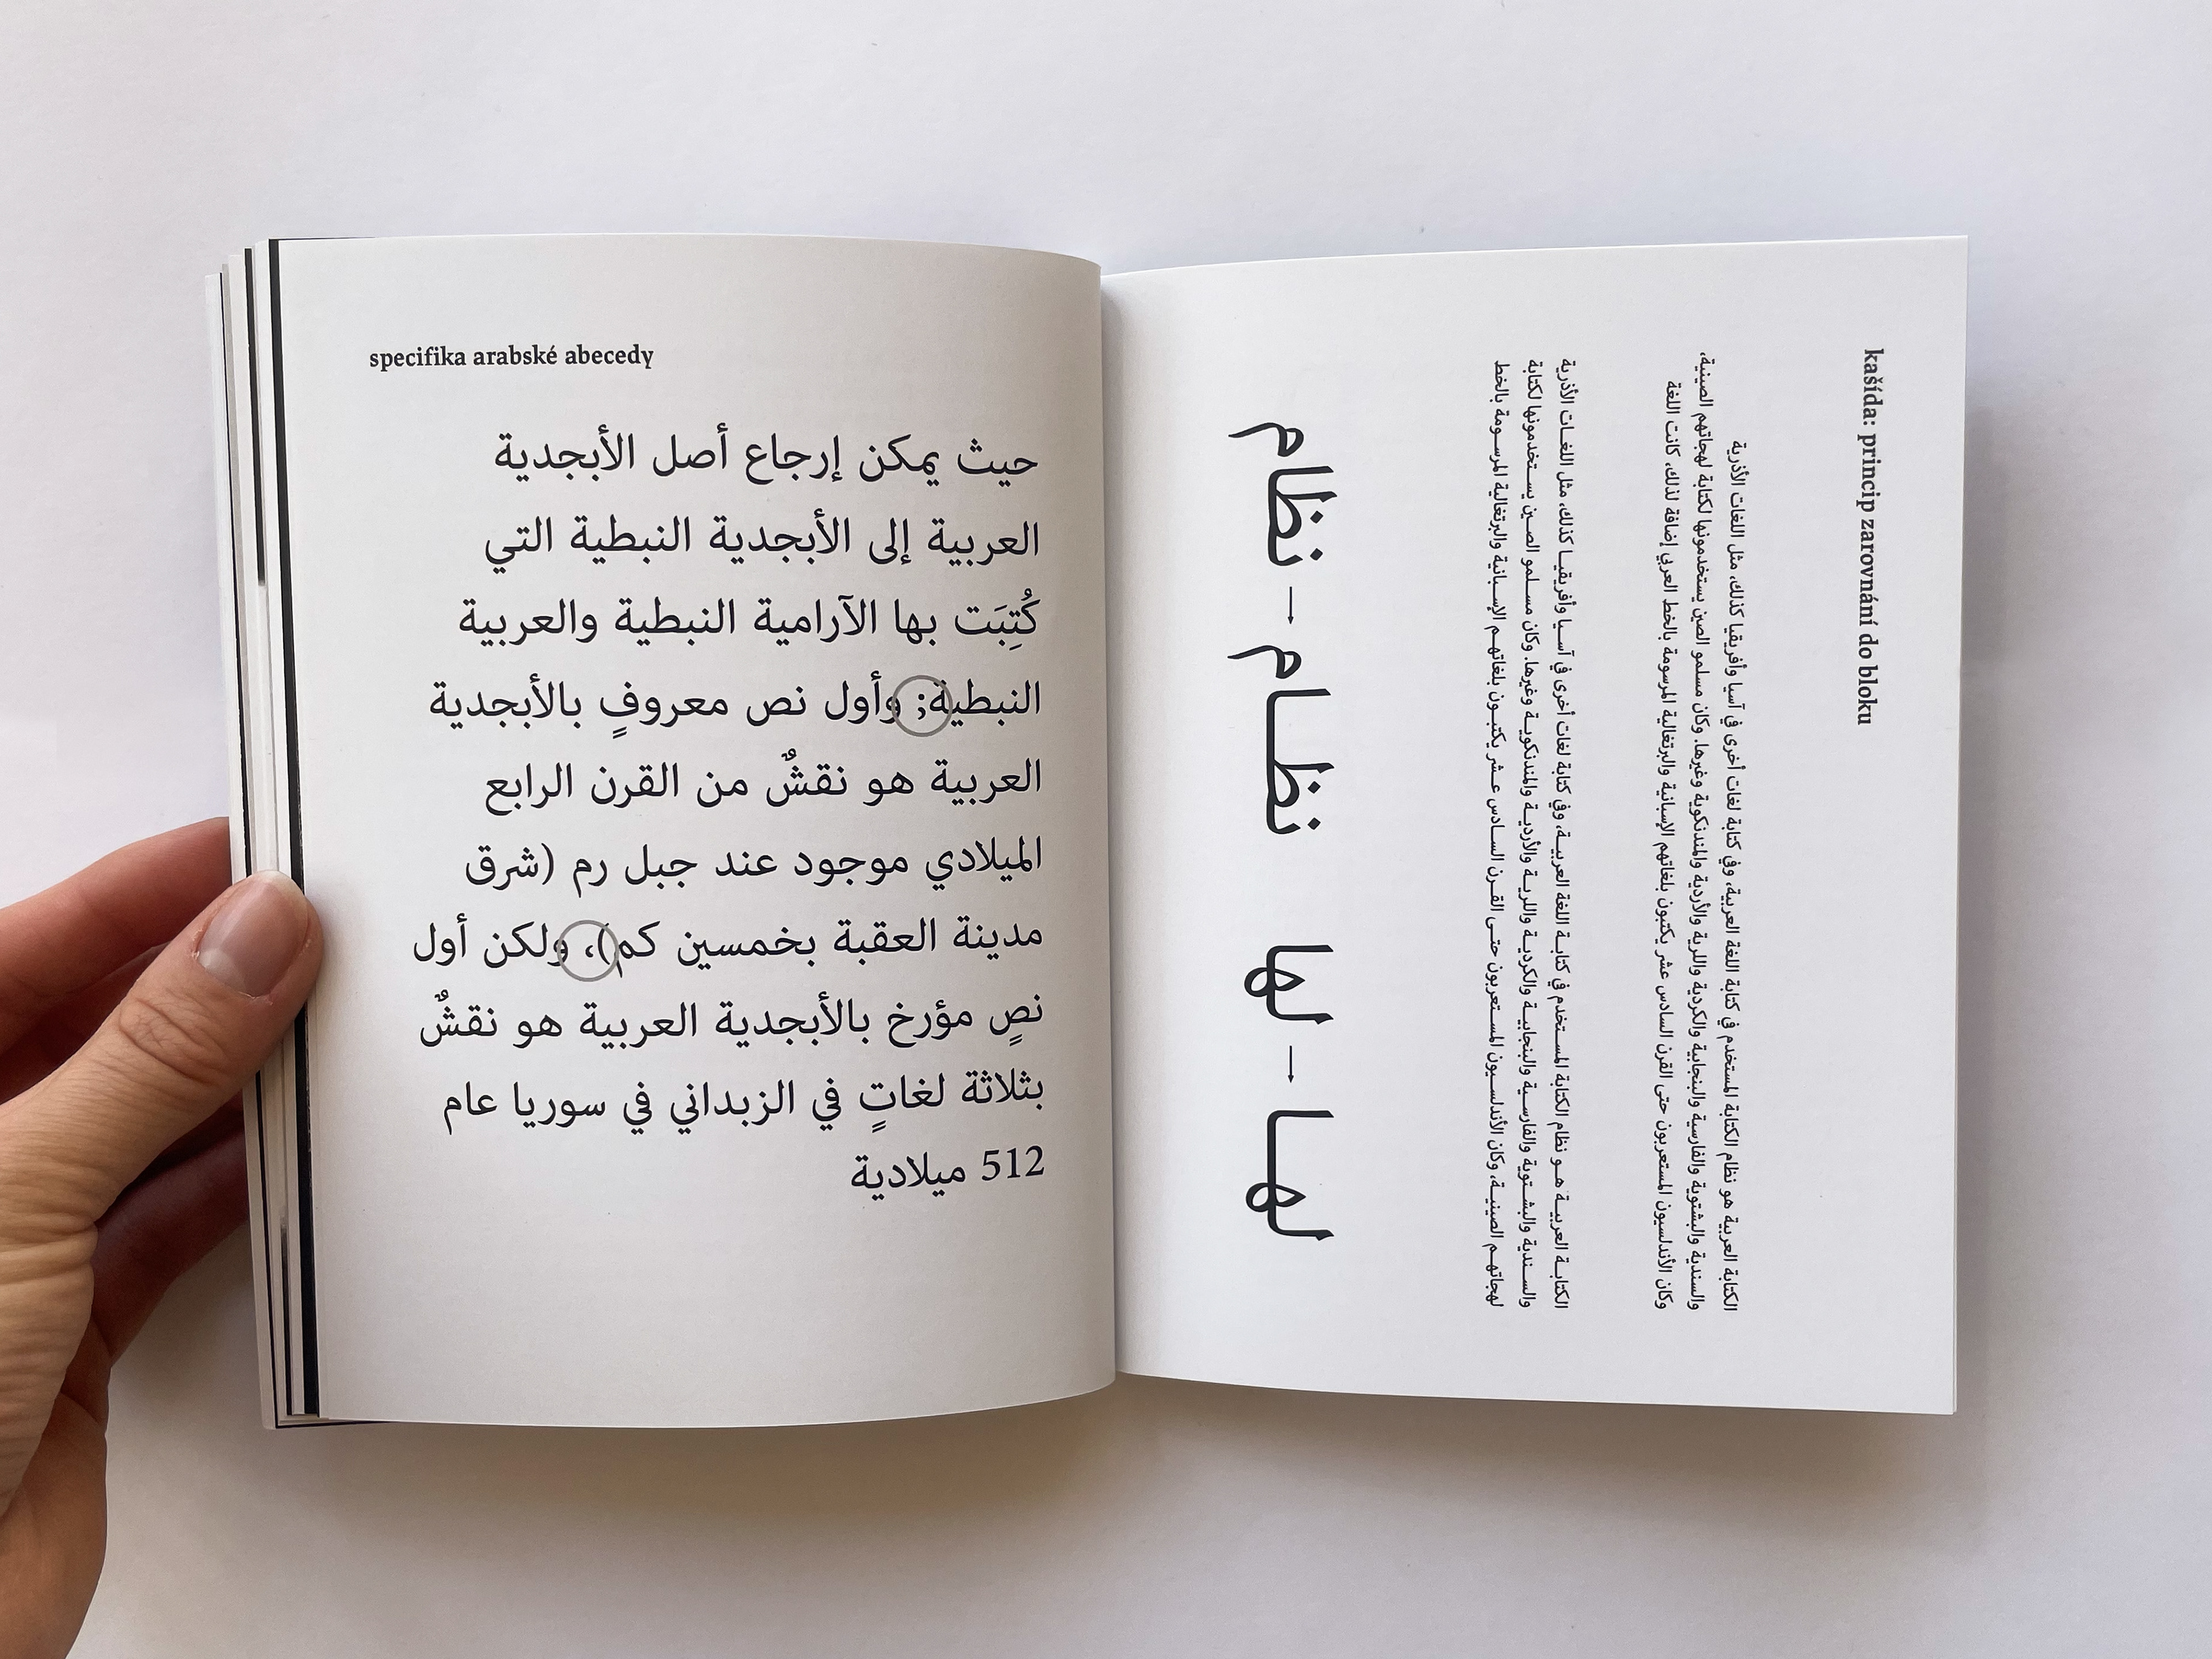 specifika arabské abecedy
حيث يمكن إرجاع أصل الأبجدية
العربية إلى الأبجدية النبطية التي
كُتِبَت بها الآرامية النبطية والعربية
النبطية; وأول نص معروفٍ بالأبجدية
العربية هو نقشٌ من القرن الرابع
الميلادي موجود عند جبل رم (شرق
مدينة العقبة بخمسين كم)، ولكن أول
نصٍ مؤرخ بالأبجدية العربية هو نقشٌ
بثلاثة لغاتٍ في الزبداني في سوريا عام
512 ميلادية
kašída: princip zarovnání do bloku
الكتابة العربية هو نظام الكتابة المستخدم في كتابة اللغة العربية، وفي كتابة لغات أخرى في آسيا وأفريقيا كذلك، مثل اللغات الأذرية
والسندية والبشتوية والفارسية والبنجابية والكردية واللرية والأردية والمندنكوية وغيرها. وكان مسلمو الصين يستخدمونها لكتابة لهجاتهم الصينية،
وكان الأندلسيون المستعربون حتى القرن السادس عشر يكتبون بلغاتهم الإسبانية والبرتغالية المرسومة بالخط العربي إضافة لذلك، كانت اللغة
الكتابــة العربيــة هــو نظام الكتابة المســتخدم في كتابــة اللغة العربيــة، وفي كتابة لغات أخرى في آســيا وأفريقيــا كذلك، مثل اللغــات الأذرية
والســندية والبشــتوية والفارســية والبنجابيــة والكرديــة واللريــة والأرديــة والمندنكويــة وغيرها. وكان مســلمو الصــين يســتخدمونها لكتابة
لهجاتهــم الصينيــة، وكان الأندلســيون المســتعربون حتــى القــرن الســادس عــشر يكتبــون بلغاتهــم الإســبانية والبرتغالية المرســومة بالخط
لهــا ← لها نظــام ← نظام